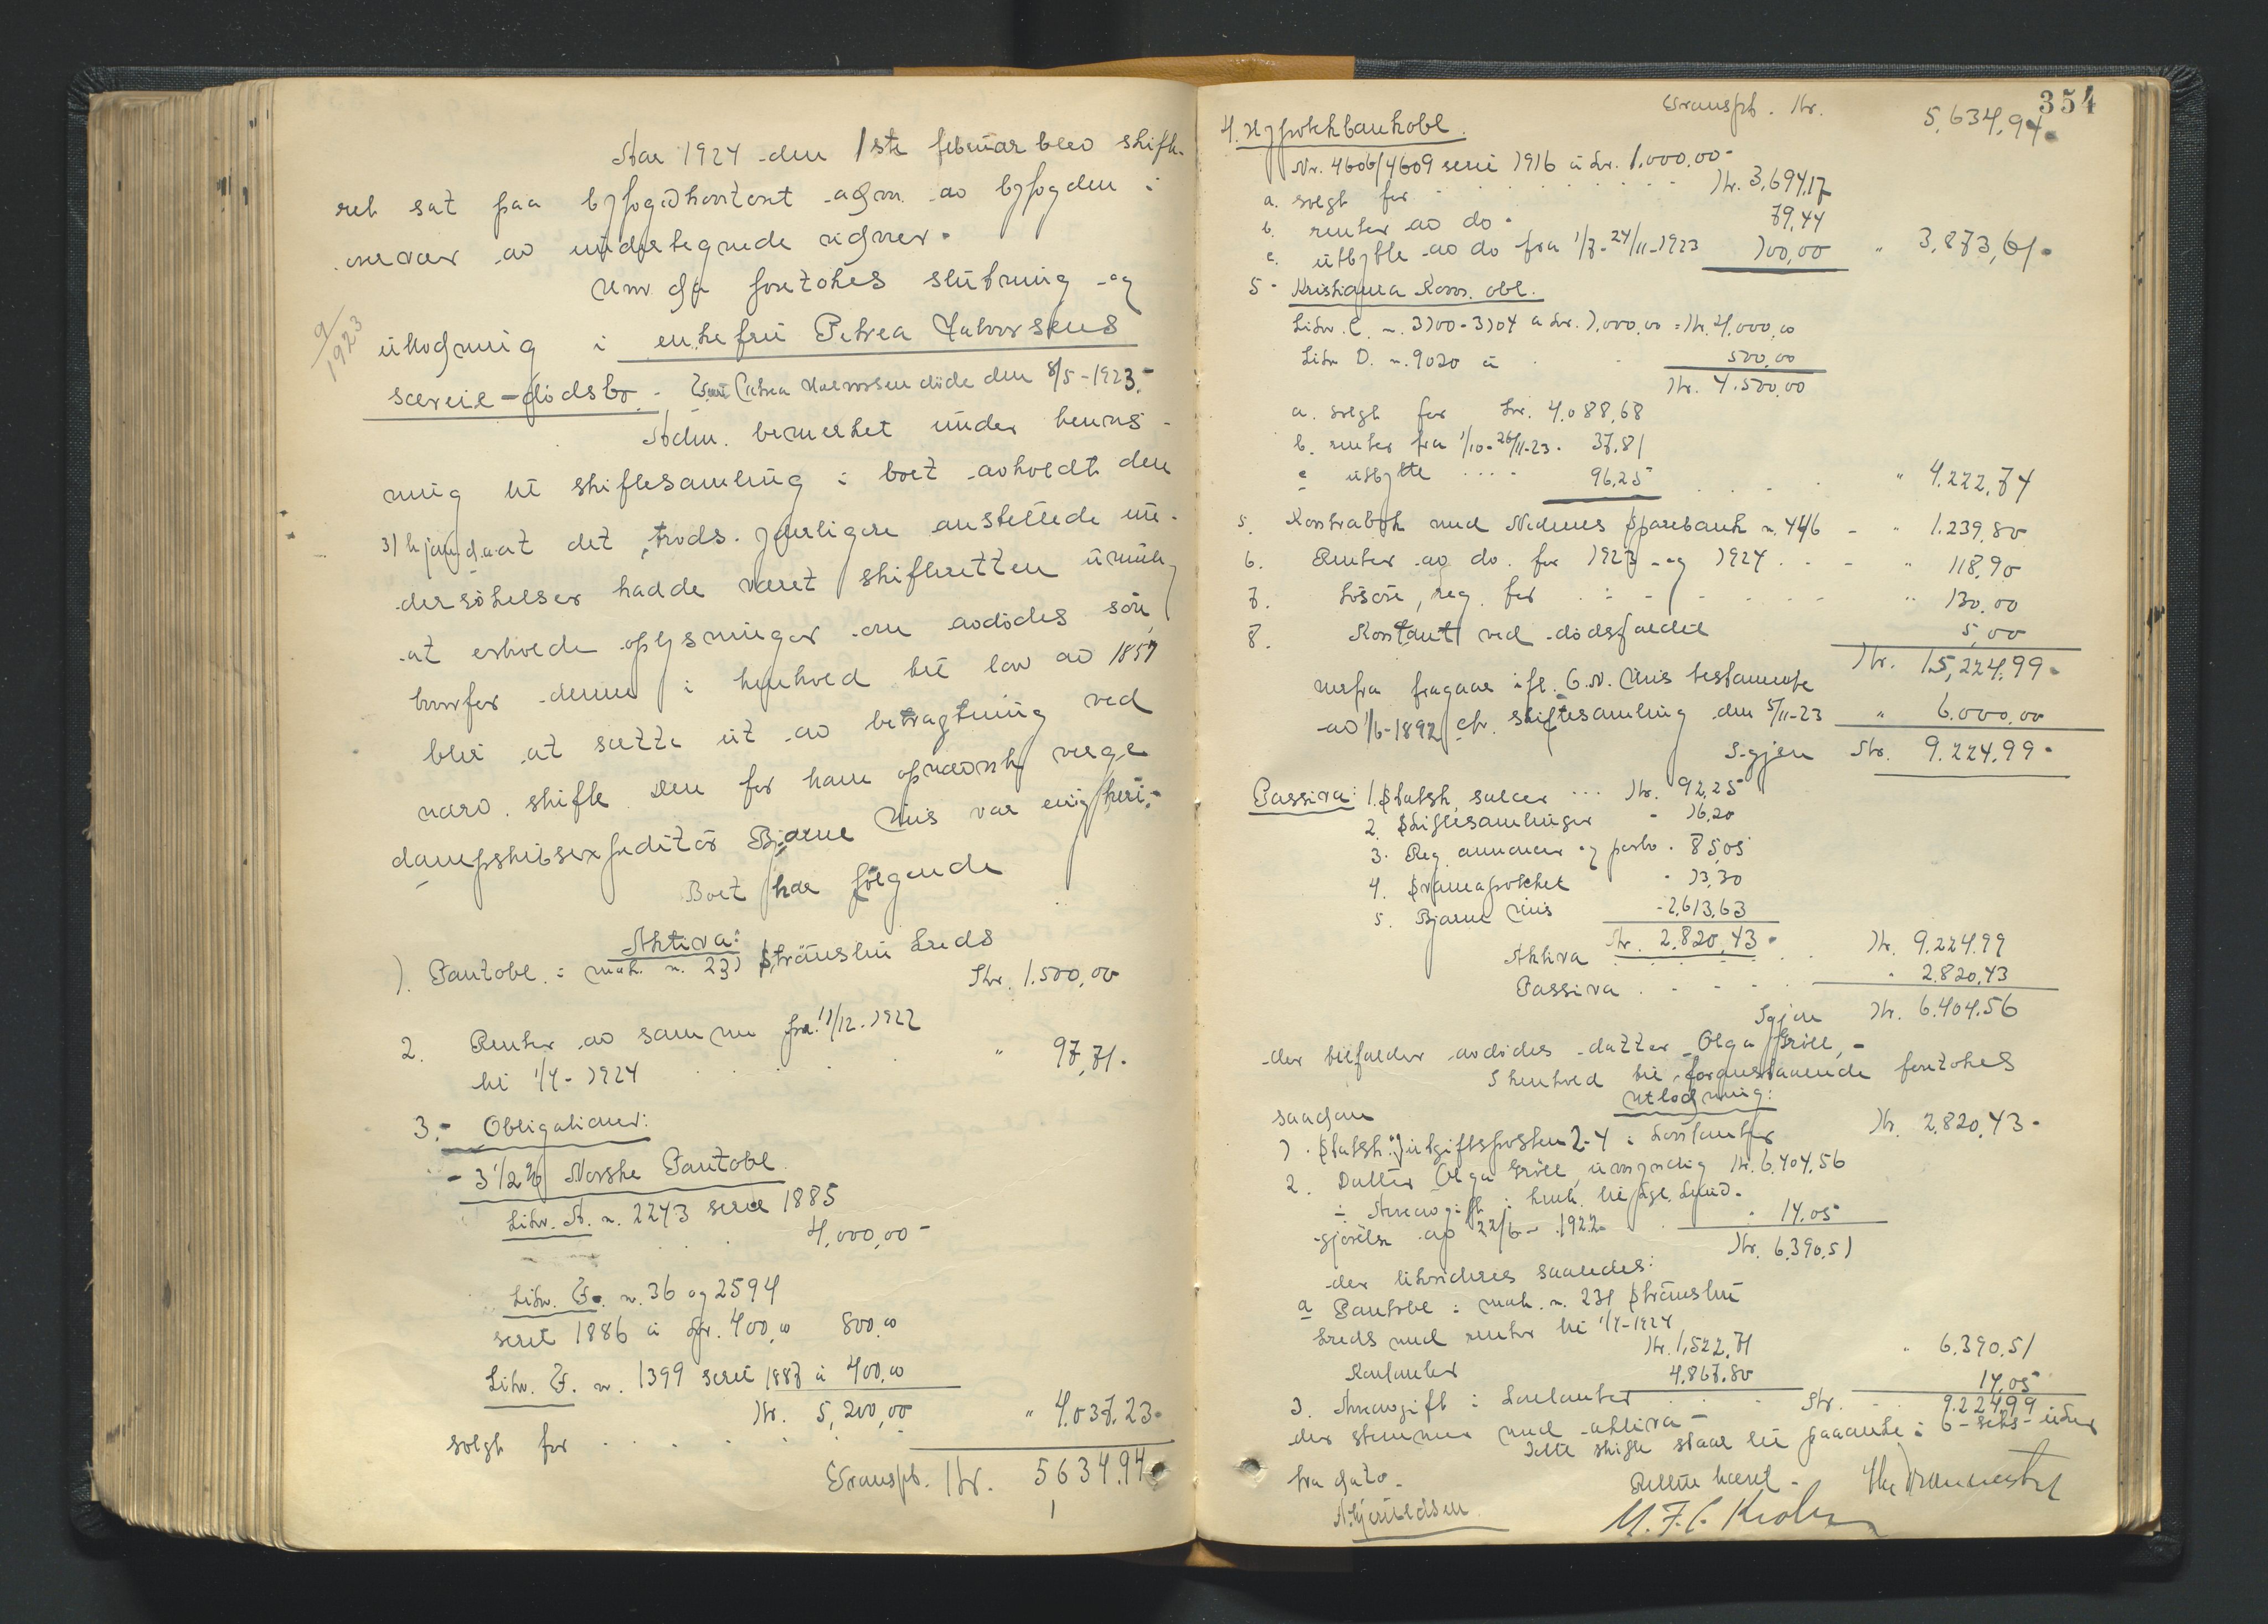 Aar 1924 den 1ste februar blev skifte-
ret sat paa byfogedkontoret adm. av byfogden i
nærvær av undertegnede vidner.
Hvorda foretokes slutning og
utlodning i enkefru Petrea Halvorsens
9/1923
særeie-dødsbo. - Fru Petrea Halvorsen døde den 8/5-1923.-
Adm. bemerket under henvis-
ning til skiftesamling i boet avholdt den
at det trods yderligere anstillede un-
dersøkelser hadde været skifteretten umulig
at erholde oplysninger om avdødes søn,
hvorfor denne i henhold til lov av 1857
blir at sætte ut av betragtning ved
nærv. skifte. Den for ham opnævnte verge
dampskibsexpeditør Bjarne Riis var enig heri.-
Boet har følgende
Aktiva:
1. Pantobl. i matr. n. 231 Strømsbu
kreds Kr. 1.500,00
2. Renter av samme fra 11/12-1922
til 1/4-1924 . . . . " 97,71.
3.- Obligationer:
- 3 1/2 % Norske Pantobl.
Litr. A. n. 2243 serie 1885
4,000,00-
Litr. F. n. 36 og 2594
serie 1886 à kr. 400,00 800,00
Litr. F. n. 1399 serie 1887 à 400,00
Kr. 5,200,00
solgt for . . . . . " 4.037.23.
Transpt. Kr. 5634.94
354
Transpt. Kr. 5,634,94.
4. Hypotekbankobl.
Nr. 4606/4609 serie 1916 à kr. 1.000.00-
a. solgt for . . . . . Kr. 3,694,17
b. renter av do. 79,44
c. utbytte av do fra 1/7-24/11-1923 100,00 " 3,873,61.
5- Kristiania Kom. obl.
Litr. C. n. 3100-3104 à kr. 1,000,00 = Kr. 4,000,00
Litr. D. n. 9020 à . . 500,00
Kr. 4.500,00
a. solgt for Kr. 4.088,68
b. renter fra 1/10-26/11-23. 37.81
c utbytte .... 96.25 . . . " 4.222,74
5. Kontrabok med Nedenes Sparebank n. 4416 - " 1.239,80
6. Renter av do. for 1923 og 1924 . - - " 118,90
7. Løsøre, reg. for . - - - - " 130,00
8. Kontant ved dødsfaldet 5,00
Kr. 15,224,99.
Herfra fragaar ifl. Riis testamente
av 1/6-1892 cfr. skiftesamling den 5/11-23 " 6.000,00
Igjen Kr. 9.224,99.
Passiva: 1. Statsk. ... Kr. 92,25
2. Skiftesamlinger " 16,20
3. Reg. annoncer og porto. 85,05
4. " 13,30
5. Bjarne Riis - 2,613,63
Kr. 2.820,43.
Aktiva . . . . . Kr. 9.224.99
Passiva . - - - . " 2.820,43
Igjen Kr. 6.404.56
der tilfalder avdødes datter Olga Grøll,-
I henhold til foranstaaende foretokes
saadan
Utlodning:
1. Statsk. og utgiftsposten 2-4 i kontanter Kr. 2,820,43.
2. Datter Olga Grøll, umyndig Kr. 6,404,56
÷ Arveavgift i henh. til kgl. kund-
gjørelse av 22/6-1922 . 14,05
Kr. 6,390,51
der likvideres saaledes:
a Pantobl. i matr. n. 231 Strømsbu
kreds med renter til 1/4-1924
Kr. 1,522,71
Kontanter 4.867.80 " 6.390.51
3. Arveavgift i kontanter . . . 14,05
Kr. 9.224,99
der stemmer med aktiva-
Dette skifte staar til paaanke i 6-seks- uker
fra dato.
Retten hævet.-
M.F.C. Krohn